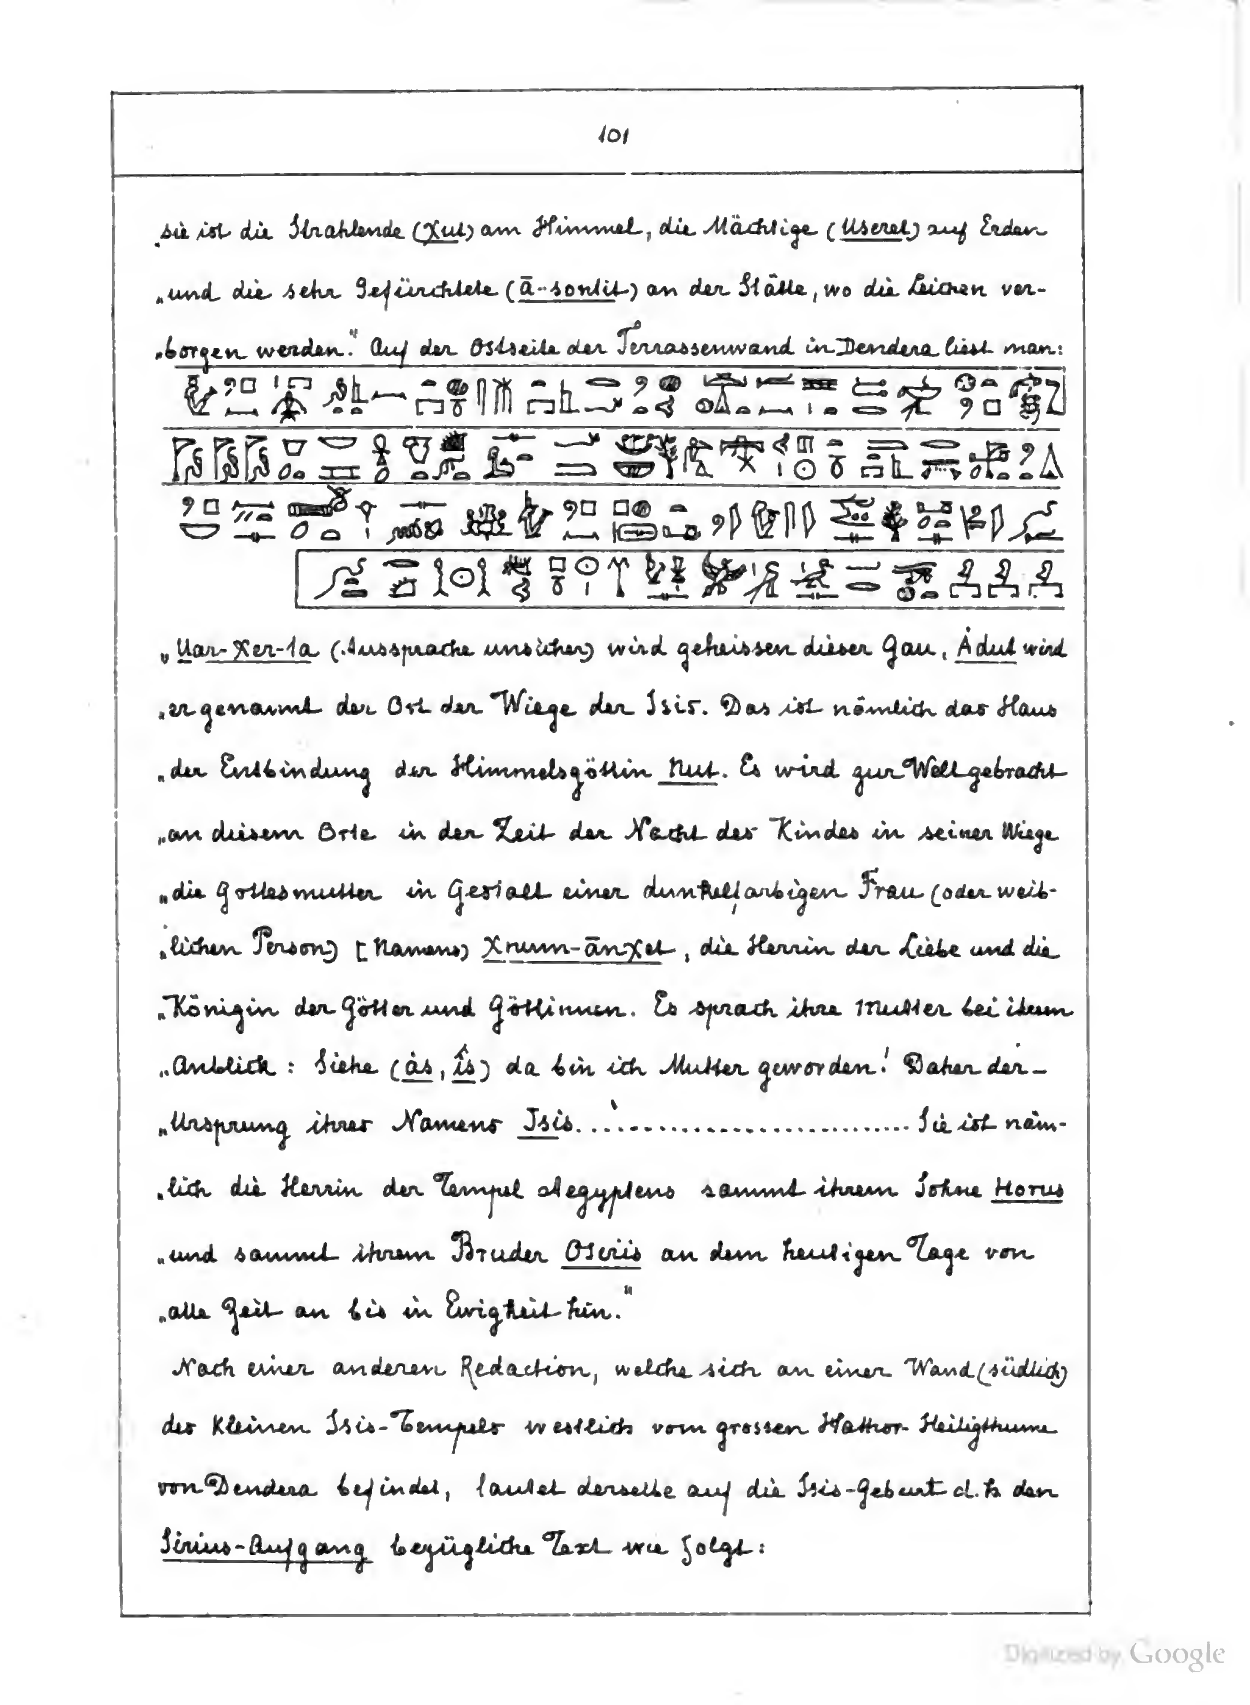 101
„sie ist die Strahlende (Xut) am Himmel, die Mächtige (Useret) auf Erden
„und die sehr Gefürchtete (ā-sontit) an der Stätte, wo die Leichen ver-
„borgen werden." Auf der Ostseite der Terrassenwand in Dendera liest man:
„Uar-Xer-ta (Aussprache unsicher) wird geheissen dieser Gau, Àdut wird
„er genannt der Ort der Wiege der Isis. Das ist nämlich das Haus
„der Entbindung der Himmelsgöttin Nut. Es wird zur Welt gebracht
„an diesem Orte in der Zeit der Nacht des Kindes in seiner Wiege
„die Gottesmutter in Gestalt einer dunkelfarbigen Frau (oder weib-
„lichen Person) [Namens) Xnum-ānxet, die Herrin der Liebe und die
„Königin der Götter und Göttinnen. Es sprach ihre Mutter bei ihrem
„Anblick: Siehe (às, îs) da bin ich Mutter geworden! Daher der-
„Ursprung ihres Namens Isis............................. Sie ist näm-
„lich die Herrin der Tempel Aegyptens sammt ihrem Sohne Horus
„und sammt ihrem Bruder Osiris an dem heutigen Tage von
„alle Zeit an bis in Ewigkeit hin."
Nach einer anderen Redaction, welche sich an einer Wand (südlich)
des kleinen Isis-Tempels westlich vom grossen Hathor-Heiligthume
von Dendera befindet, lautet derselbe auf die Isis-Geburt d. h den
Sirius-Aufgang bezügliche Text wie folgt:
Digitized by Google